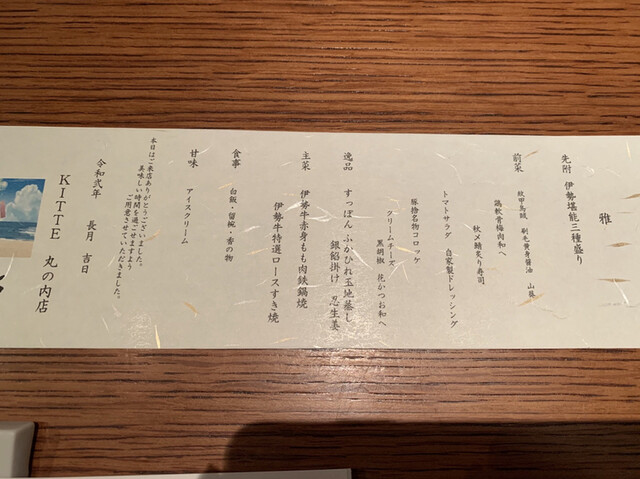 雅
先附 伊勢堪能三種盛り
前菜
紋甲烏賊 刷毛黄身醤油 山葵
鶏軟骨梅肉和へ
秋〆鯖炙り寿司
トマトサラダ 自家製ドレッシング
豚捨名物コロッケ
クリームチーズ
黒胡椒 花かつお和へ
逸品 すっぽん・ふかひれ玉地蒸し
銀餡掛け 忍生姜
主菜 伊勢牛赤身もも肉鉄鍋焼
伊勢牛特選ロースすき焼
食事 白飯・留椀・香の物
甘味 アイスクリーム
本日はご来店ありがとうございました。
美味しい時間を過ごせますよう
ご用意させていただきました。
令和弐年 長月 吉日
KITTE 丸の内店